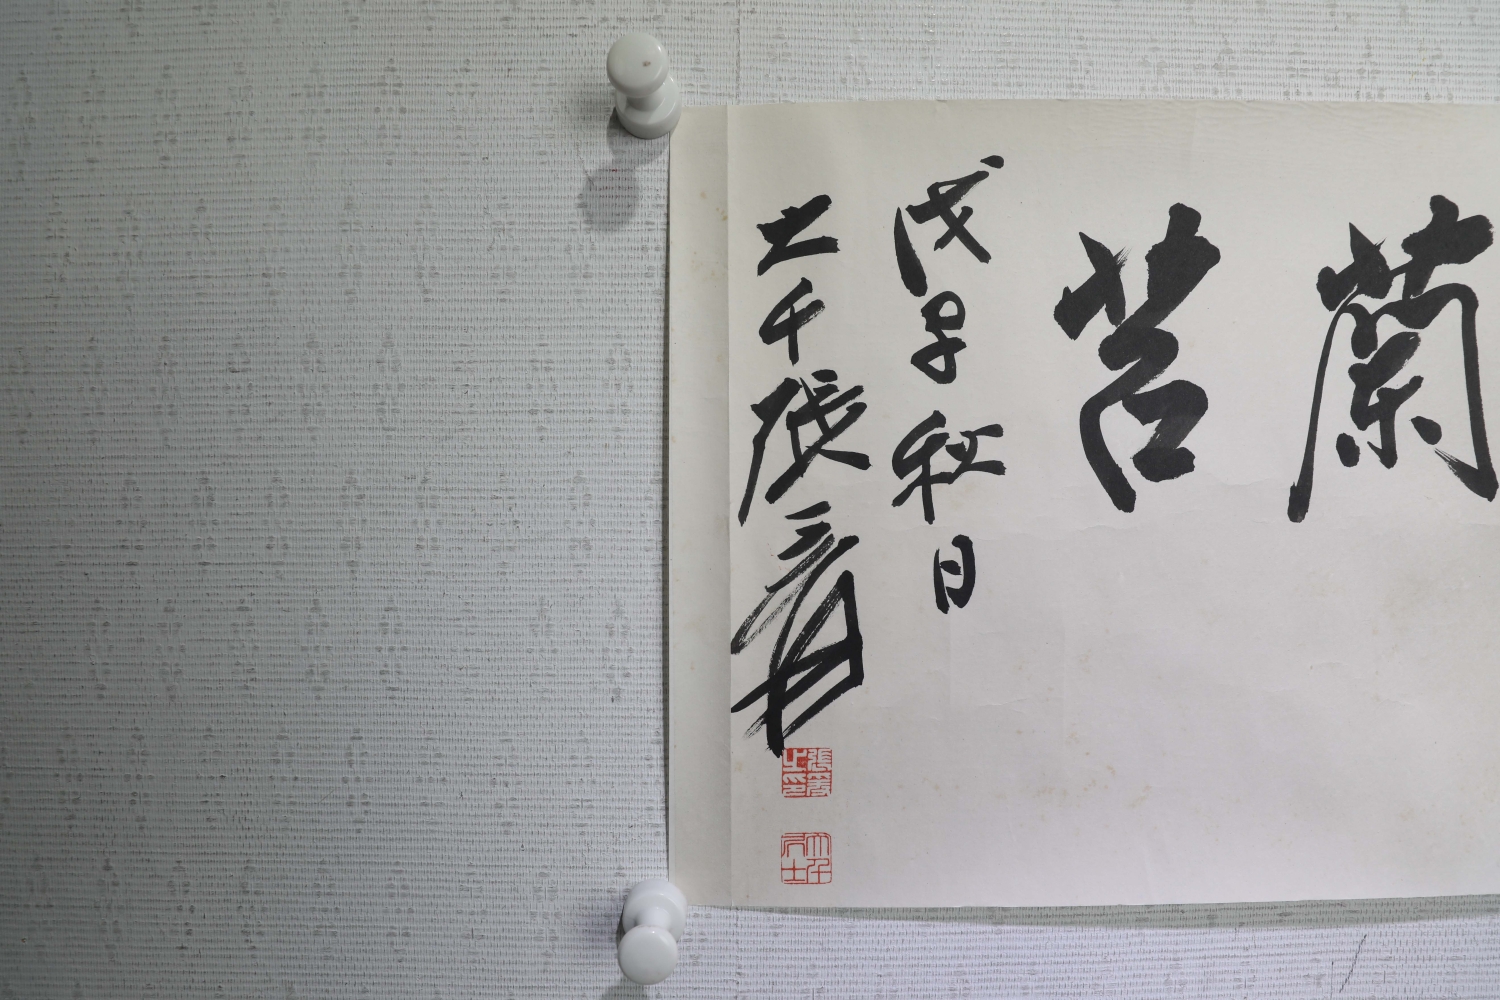 蘭苕
戊子秋日
大千張爰
張爰之印
大千居士